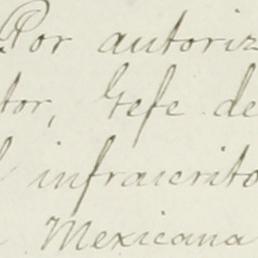 Por autoriz
tor, Gefe de
l infrascrito
Mexicana